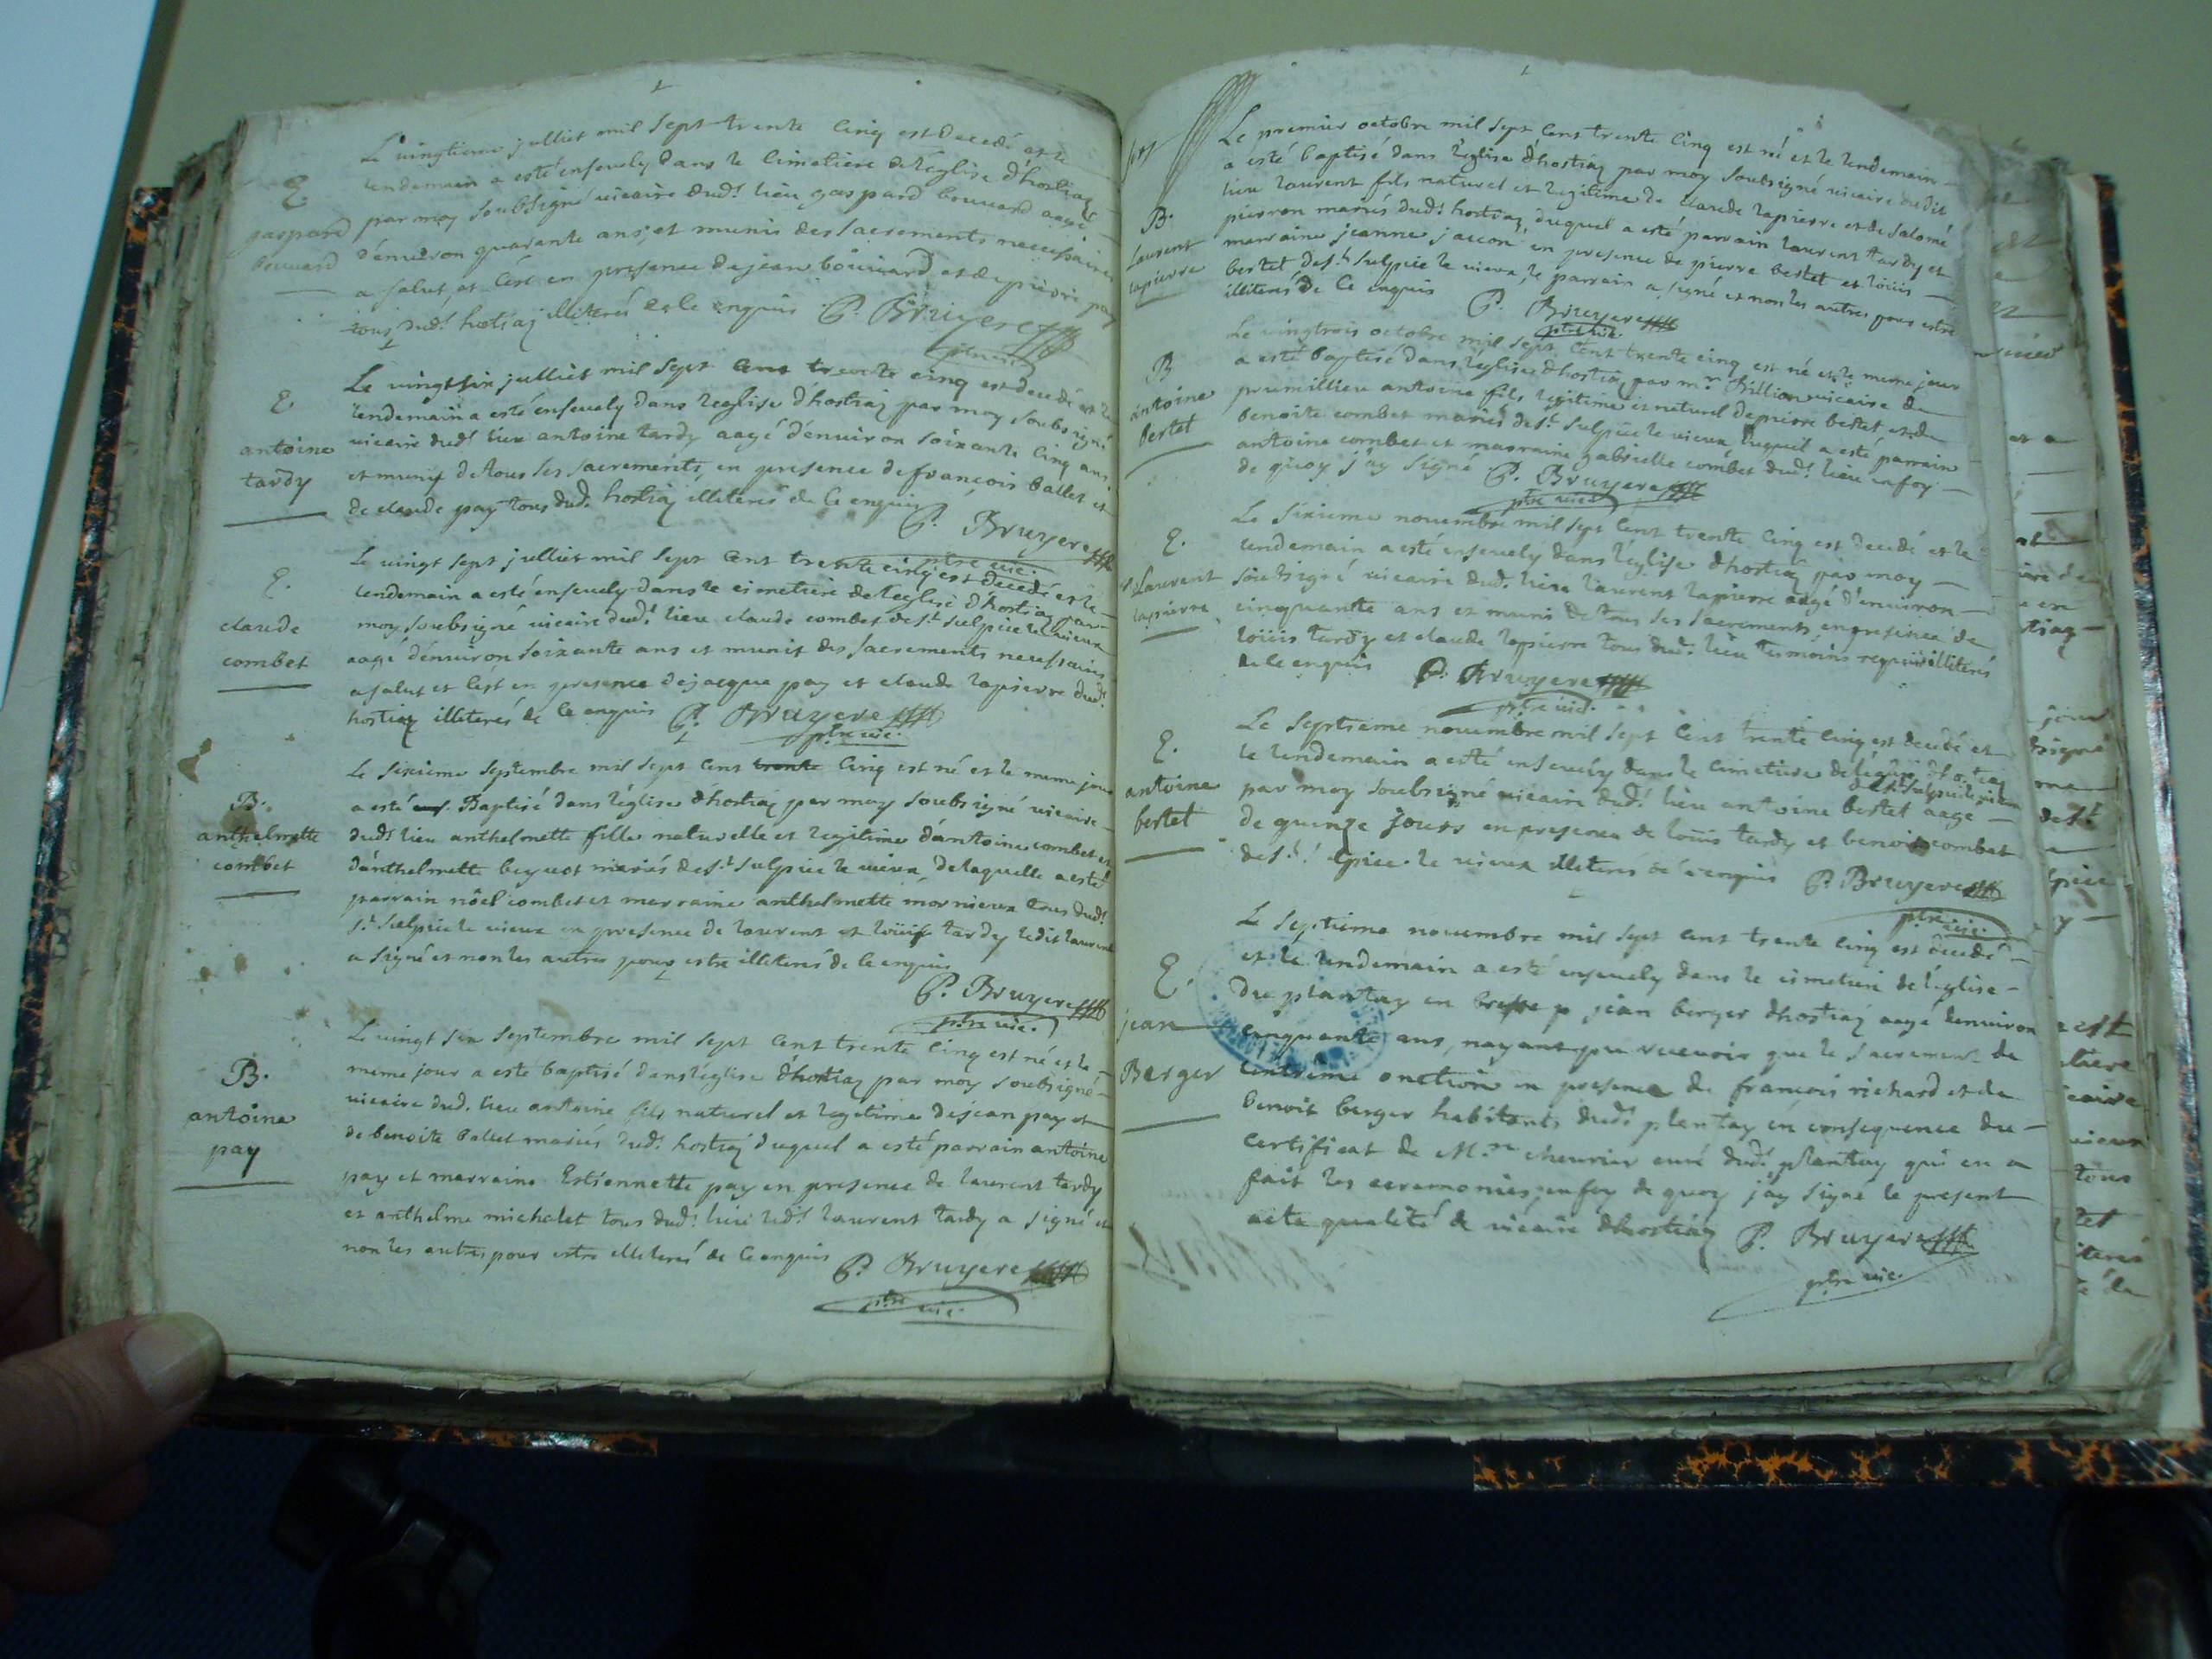 Le vingtieme julliet mil sept trente cinq est decedé et le
lendemain a esté ensevely dans le cimetiere de l'eglise d'hostiaz
par moy soubsigné vicaire dudt lieu gaspard bouvard aagé
d'environ quarante ans, et munis des sacrements necessaires
a salut, et c'est en presence de jean bouvard et de pierre pay
tous dudt hostiaz illiterés de ce enquis P. Bruyere
ptre vic.
E.
gaspard
bouvard
Le vingt six julliet mil sept cent trente cinq est decedé et le
lendemain a esté ensevely dans l'eglise d'hostiaz par moy soubsigné
vicaire dudt lieu antoine tardy aagé d'environ soixante cinq ans,
et munis de tous ses sacrements, en presence de francois ballet et
de claude pay tous dud. hostiaz illiterés de ce enquis P. Bruyere
ptre vic.
E.
antoine
tardy
Le vingt sept julliet mil sept cent trente cinq est decedé et le
lendemain a esté ensevely dans le cimetiere de l'eglise d'hostiaz par
moy soubsigné vicaire dudt lieu claude combet de st sulpice le vieux
aagé d'environ soixante ans et munis des sacrements necessaires
a salut et c'est en presence de jacque pay et claude lapierre dudt
hostiaz illiterés de ce enquis P. Bruyere
ptre vic.
E.
claude
combet
Le sixieme septembre mil sept cent trente cinq est né et le meme jour
a esté Baptisé dans l'eglise d'hostiaz par moy soubsigné vicaire
dudt lieu anthelmette fille naturelle et legitime d'antoine combet et
d'anthelmette beynot mariés de st sulpice le vieux, de laquelle a esté
parrain nöel combet et marraine anthelmette mornieux tous dudt
st sulpice le vieux en presence de laurent et loüis tardy ledit laurent
a signé et non les autres pour estre illiterés de ce enquis
P. Bruyere
ptre vic.
B.
anthelmette
combet
Le vingt six septembre mil sept cent trente cinq est né et le
meme jour a esté baptisé dans l'eglise d'hostiaz par moy soubsigné
vicaire dud. lieu antoine fils naturel et legitime de jean pay et
de benoite ballet mariés dudt hostiaz duquel a esté parrain antoine
pay et marraine Estiennette pay en presence de laurent tardy
et anthelme michalet tous dudt lieu ledt laurent tardy a signé et
non les autres pour estre illiterés de ce enquis
P. Bruyere
ptre vic.
B.
antoine
pay
Le premier octobre mil sept cent trente cinq est né et le lendemain
a esté baptisé dans l'eglise d'hostiaz par moy soubsigné vicaire dudit
lieu laurent fils naturel et legitime de claude lapierre et de salomé
pierron mariés dudt hostiaz duquel a esté parrain laurent tardy et
marraine jeanne jaccon en presence de pierre bertet et loüis
bertet de st sulpice le vieux, le parrain a signé et non les autres pour estre
illiterés de ce enquis P. Bruyere
ptre vic.
B.
Laurent
lapierre
Le vingtrois octobre mil sept cent trente cinq est né et le meme jour
a esté baptisé dans l'eglise d'hostiaz par mr Billion vicaire de
prumillieu antoine fils legitime et naturel de pierre bertet et de
benoite combet mariés de st sulpice le vieux, duquel a esté parrain
antoine combet et marraine gabrielle combet dudt lieu en foy
de quoy j'ay signé P. Bruyere
ptre vic.
B
antoine
bertet
Le sixieme novembre mil sept cent trente cinq est decedé et le
lendemain a esté ensevely dans l'eglise d'hostiaz par moy
soubsigné vicaire dud. lieu laurent lapierre aagé d'environ
cinquante ans et munis de tous ses sacrements, en presence de
loüis tardy et claude lapierre tous dud. lieu temoins requis illiterés
de ce enquis P. Bruyere
ptre vic.
E.
Laurent
lapierre
Le septieme novembre mil sept cent trente cinq est decedé et
le lendemain a esté ensevely dans le cimetiere de l'eglise d'hostiaz
de st sulpice le vieux
par moy soubsigné vicaire dudt lieu antoine bertet aagé
de quinze jours en presence de loüis tardy et benoit combet
de st sulpice le vieux illiterés de ce enquis P. Bruyere
ptre vic.
E.
antoine
bertet
Le septieme novembre mil sept cent trente cinq est decedé
et le lendemain a esté ensevely dans le cimetiere de l'eglise
du plantay en bresse p jean berger d'hostiaz aagé d'environ
cinquante ans, nayant pu recevoir que le sacrement de
l'extreme onction en presence de francois richard et de
benoit berger habitants dudt plantay en consequence du
certificat de Mre curé dudt plantay qui en a
fait les ceremonies, en foy de quoy j'ay signé le present
acte qualité de vicaire d'hostiaz P. Bruyere
ptre vic.
E.
jean
Berger